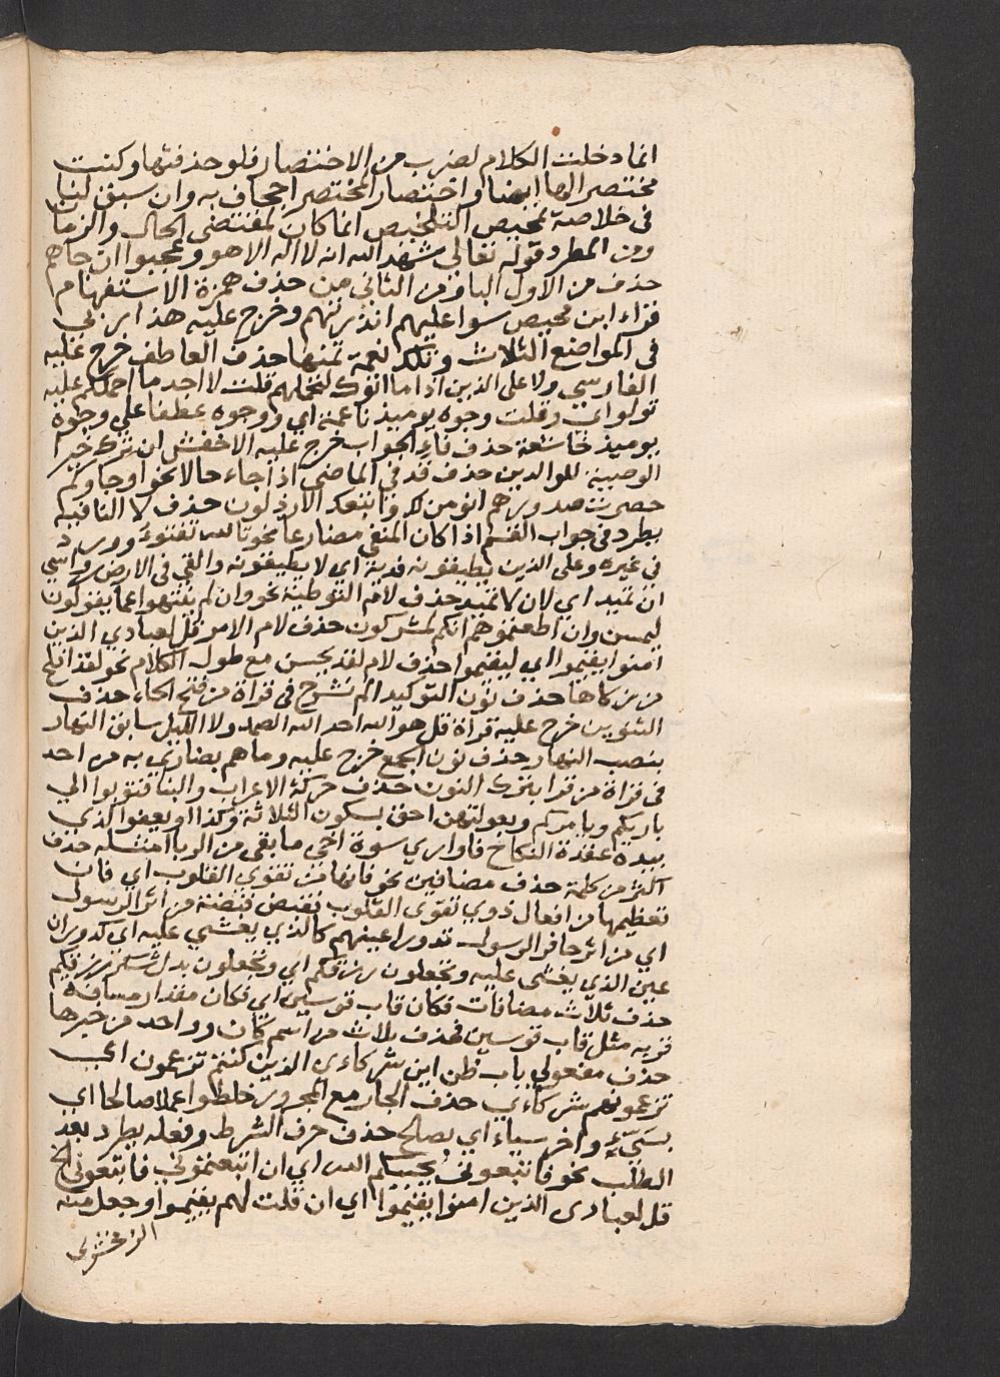 انما دخلت الكلام لضرب من الاختصار فلو حذفتها وكنت
مختصرا لها ايضا واختصار المختصر اجحاف به وان سبق لنا
في خلاصة تمحيص التلخيص انما كان لمقتضى الحال والزمان
ومن المطرد قوله تعالى شهد الله انه لا اله الا هو وعجبوا ان جاهم
حذف من الاول البا ومن الثاني من حذف همزة الاستفهام
قراء ابن محيصن سوا عليهم انذرتهم وخرج عليه هذا ربي
في المواضع الثلاث وتلك نعمة تمنها حذف العاطف خرج عليه
الفارسي ولا على الذين اذا ما اتوك لتحملهم قلت لا اجد ما احملكم عليه
تولوا اي وقلت وجوه يوميذ ناعمة اي ووجوه عطفا على وجوه
يوميذ خاشعة حذف فاء الجواب خرج عليه الاخفش ان ترك خيرا
الوصية للوالدين حذف قد في الماضي اذا جاء حالا نحو او جاوكم
حصرت صدورهم انومن لك واتبعك الارذلون حذف لا النافية
يطرد في جواب القسم اذا كان المنفي مضارعا نحو تالله تفتوء وورد
في غيره وعلى الذين يطيقونه فدية اي لا يطيقونه والقى في الارض رواسي
ان تميد اي لان لا تميد حذف لام التوطية نحو وان لم ينتهوا عما يقولون
ليمسن وان اطعتموهم انكم لمشركون حذف لام الامر قل لعبادي الذين
امنوا يقيموا اي ليقيموا حذف لام لقد يحسن مع طول الكلام نحو قد افلح
من زكاها حذف نون التوكيد الم نشرح في قراة من فتح الحاء حذف
التنوين خرج عليه قراة قل هو الله احد الله الصمد ولا الليل سابق النهار
بنصب النهار حذف نون الجمع خرج عليه وما هم بضاري به من احد
في قراة من قرا بترك النون حذف حركة الاعراب والبنا فتوبوا الى
باريكم ويامركم وبعولتهن احق بسكون الثلاثة وكذا او يعفوا الذي
بيده عقدة النكاح فاواري سوة اخي ما بقي من الربا امثله حذف
اكثر من كلمة حذف مضافين نحو فانها من تقوى القلوب اي فان
تعظيمها من افعال ذوي تقوى القلوب فقبضت قبضة من اثر الرسول
اي من اثر حافر الرسول تدور اعينهم كالذي يغشى عليه اي كدوران
عين الذي يغشى عليه وتجعلون رزقكم اي وتجعلون بدل شكر رزقكم
حذف ثلاث مضافات فكان قاب قوسين اي فكان مقدار مسافة
قربه مثل قاب قوسين فحذف ثلاث من اسم كان وواحد من خبرها
حذف مفعولي باب ظن اين شركاءي الذين كنتم تزعمون اي
تزعمونهم شركاءي حذف الجار مع المجرور خلطوا عملا صالحا اي
بسيء واخر سياء اي بصالح حذف حرف الشرط وفعله يطرد بعد
الطلب نحو فاتبعوني يحببكم الله اي ان اتبعتموني فاتبعوني الخ
قل لعبادي الذين امنوا يقيموا اي ان قلت لهم يقيموا وجعل منه
الزمخشري